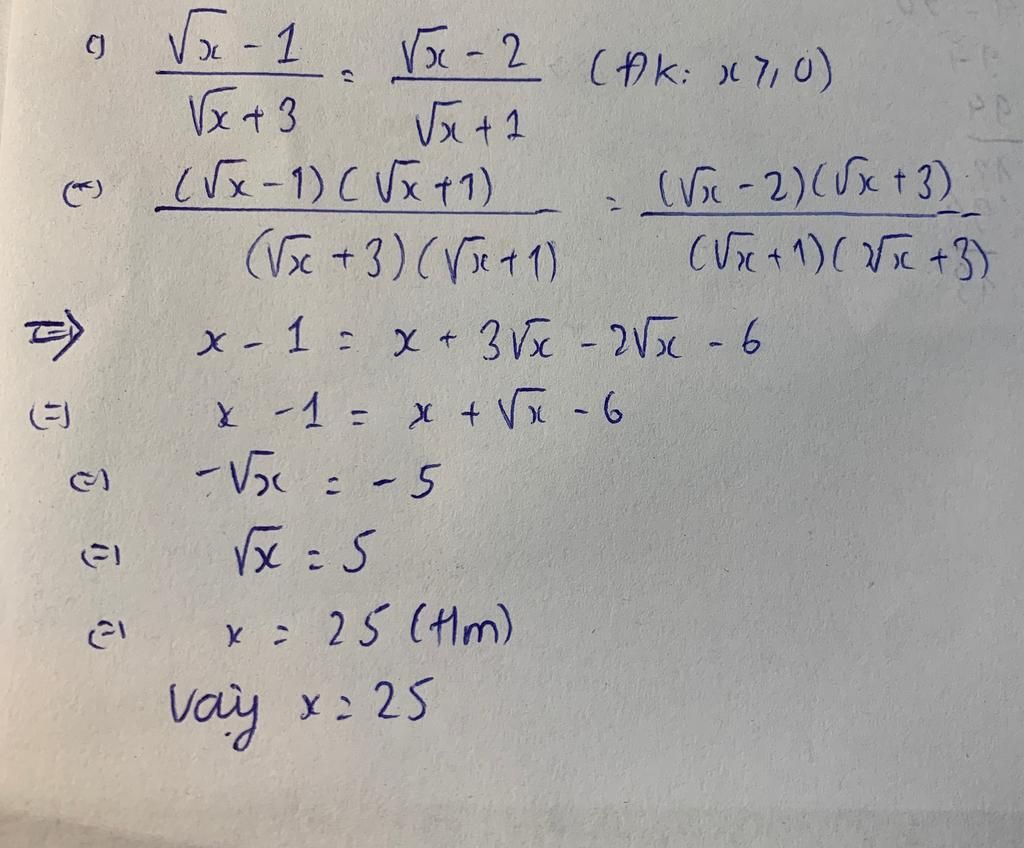 c) (√x - 1)/(√x + 3) = (√x - 2)/(√x + 1) (ĐK: x ≥ 0)
(=) ((√x - 1)(√x + 1))/((√x + 3)(√x + 1)) = ((√x - 2)(√x + 3))/((√x + 1)(√x + 3))
=> x - 1 = x + 3√x - 2√x - 6
(=) x - 1 = x + √x - 6
(=) -√x = -5
(=) √x = 5
(=) x = 25 (t/m)
Vậy x = 25